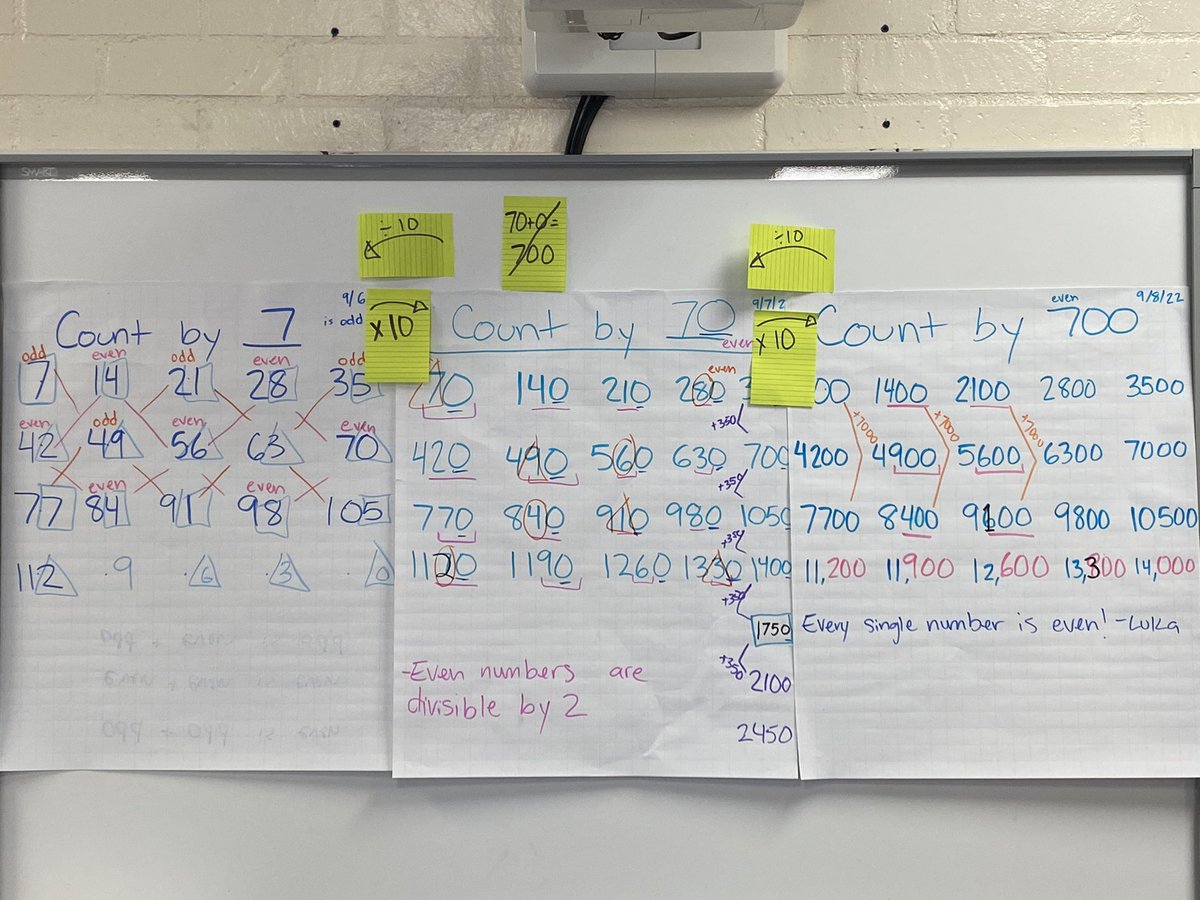 SMART
÷10
70+0=
700
÷10
x10
x10
9/6
Count by 7
is odd
odd even odd even odd
7 14 21 28 35
even odd even even
42 49 56 63 70
even even
77 84 91 98 105
112 9 6 3 0
9/7/2
Count by 70
even
even
70 140 210 280 3
+350
420 490 560 630 700
+350
770 840 910 980 1050
+350
1120 1190 1260 1330 1400
+350
1750
+350
2100
2450
-Even numbers are
divisible by 2
even 9/8/22
Count by 700
00 1400 2100 2800 3500
+7000 +7000 +7000
4200 4900 5600 6300 7000
7700 8400 9100 9800 10500
11,200 11,900 12,600 13,300 14,000
Every single number is even! -Luka